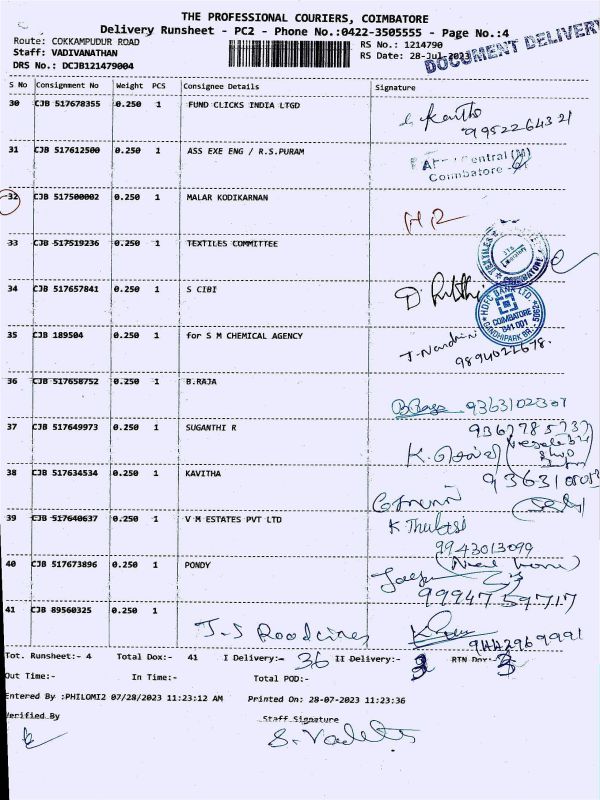 THE PROFESSIONAL COURIERS, COIMBATORE
Delivery Runsheet - PC2 - Phone No.:0422-3505555 - Page No.:4
Route: COKKAMPUDUR ROAD
Staff: VADIVANATHAN
DRS No.: DCJB121479004
RS No.: 1214790
RS Date: 28-Jul-2023
DOCUMENT DELIVERY
S No Consignment No Weight PCS Consignee Details Signature
30 CJB 517678355 0.250 1 FUND CLICKS INDIA LTGD
9952264321
31 CJB 517612500 0.250 1 ASS EXE ENG / R.S.PURAM
Central (M)
Coimbatore
32 CJB 517500002 0.250 1 MALAR KODIKARNAN
33 CJB 517519236 0.250 1 TEXTILES COMMITTEE
34 CJB 517657841 0.250 1 S CIBI
HDFC BANK LTD.
COIMBATORE
641 001
35 CJB 189504 0.250 1 for S M CHEMICAL AGENCY
J. Nandhini
9894022678.
36 CJB 517658752 0.250 1 B.RAJA
B.Raja 9363102307
37 CJB 517649973 0.250 1 SUGANTHI R
9367785737
38 CJB 517634534 0.250 1 KAVITHA
39 CJB 517640637 0.250 1 V M ESTATES PVT LTD
K Thulasi
9943013099
40 CJB 517673896 0.250 1 PONDY
9994759717
41 CJB 89560325 0.250 1
Tot. Runsheet:- 4 Total Dox:- 41 I Delivery:- 36 II Delivery:- RTN Dox:-
Out Time:- In Time:- Total POD:-
Entered By :PHILOMI2 07/28/2023 11:23:12 AM Printed On: 28-07-2023 11:23:36
Verified By Staff Signature